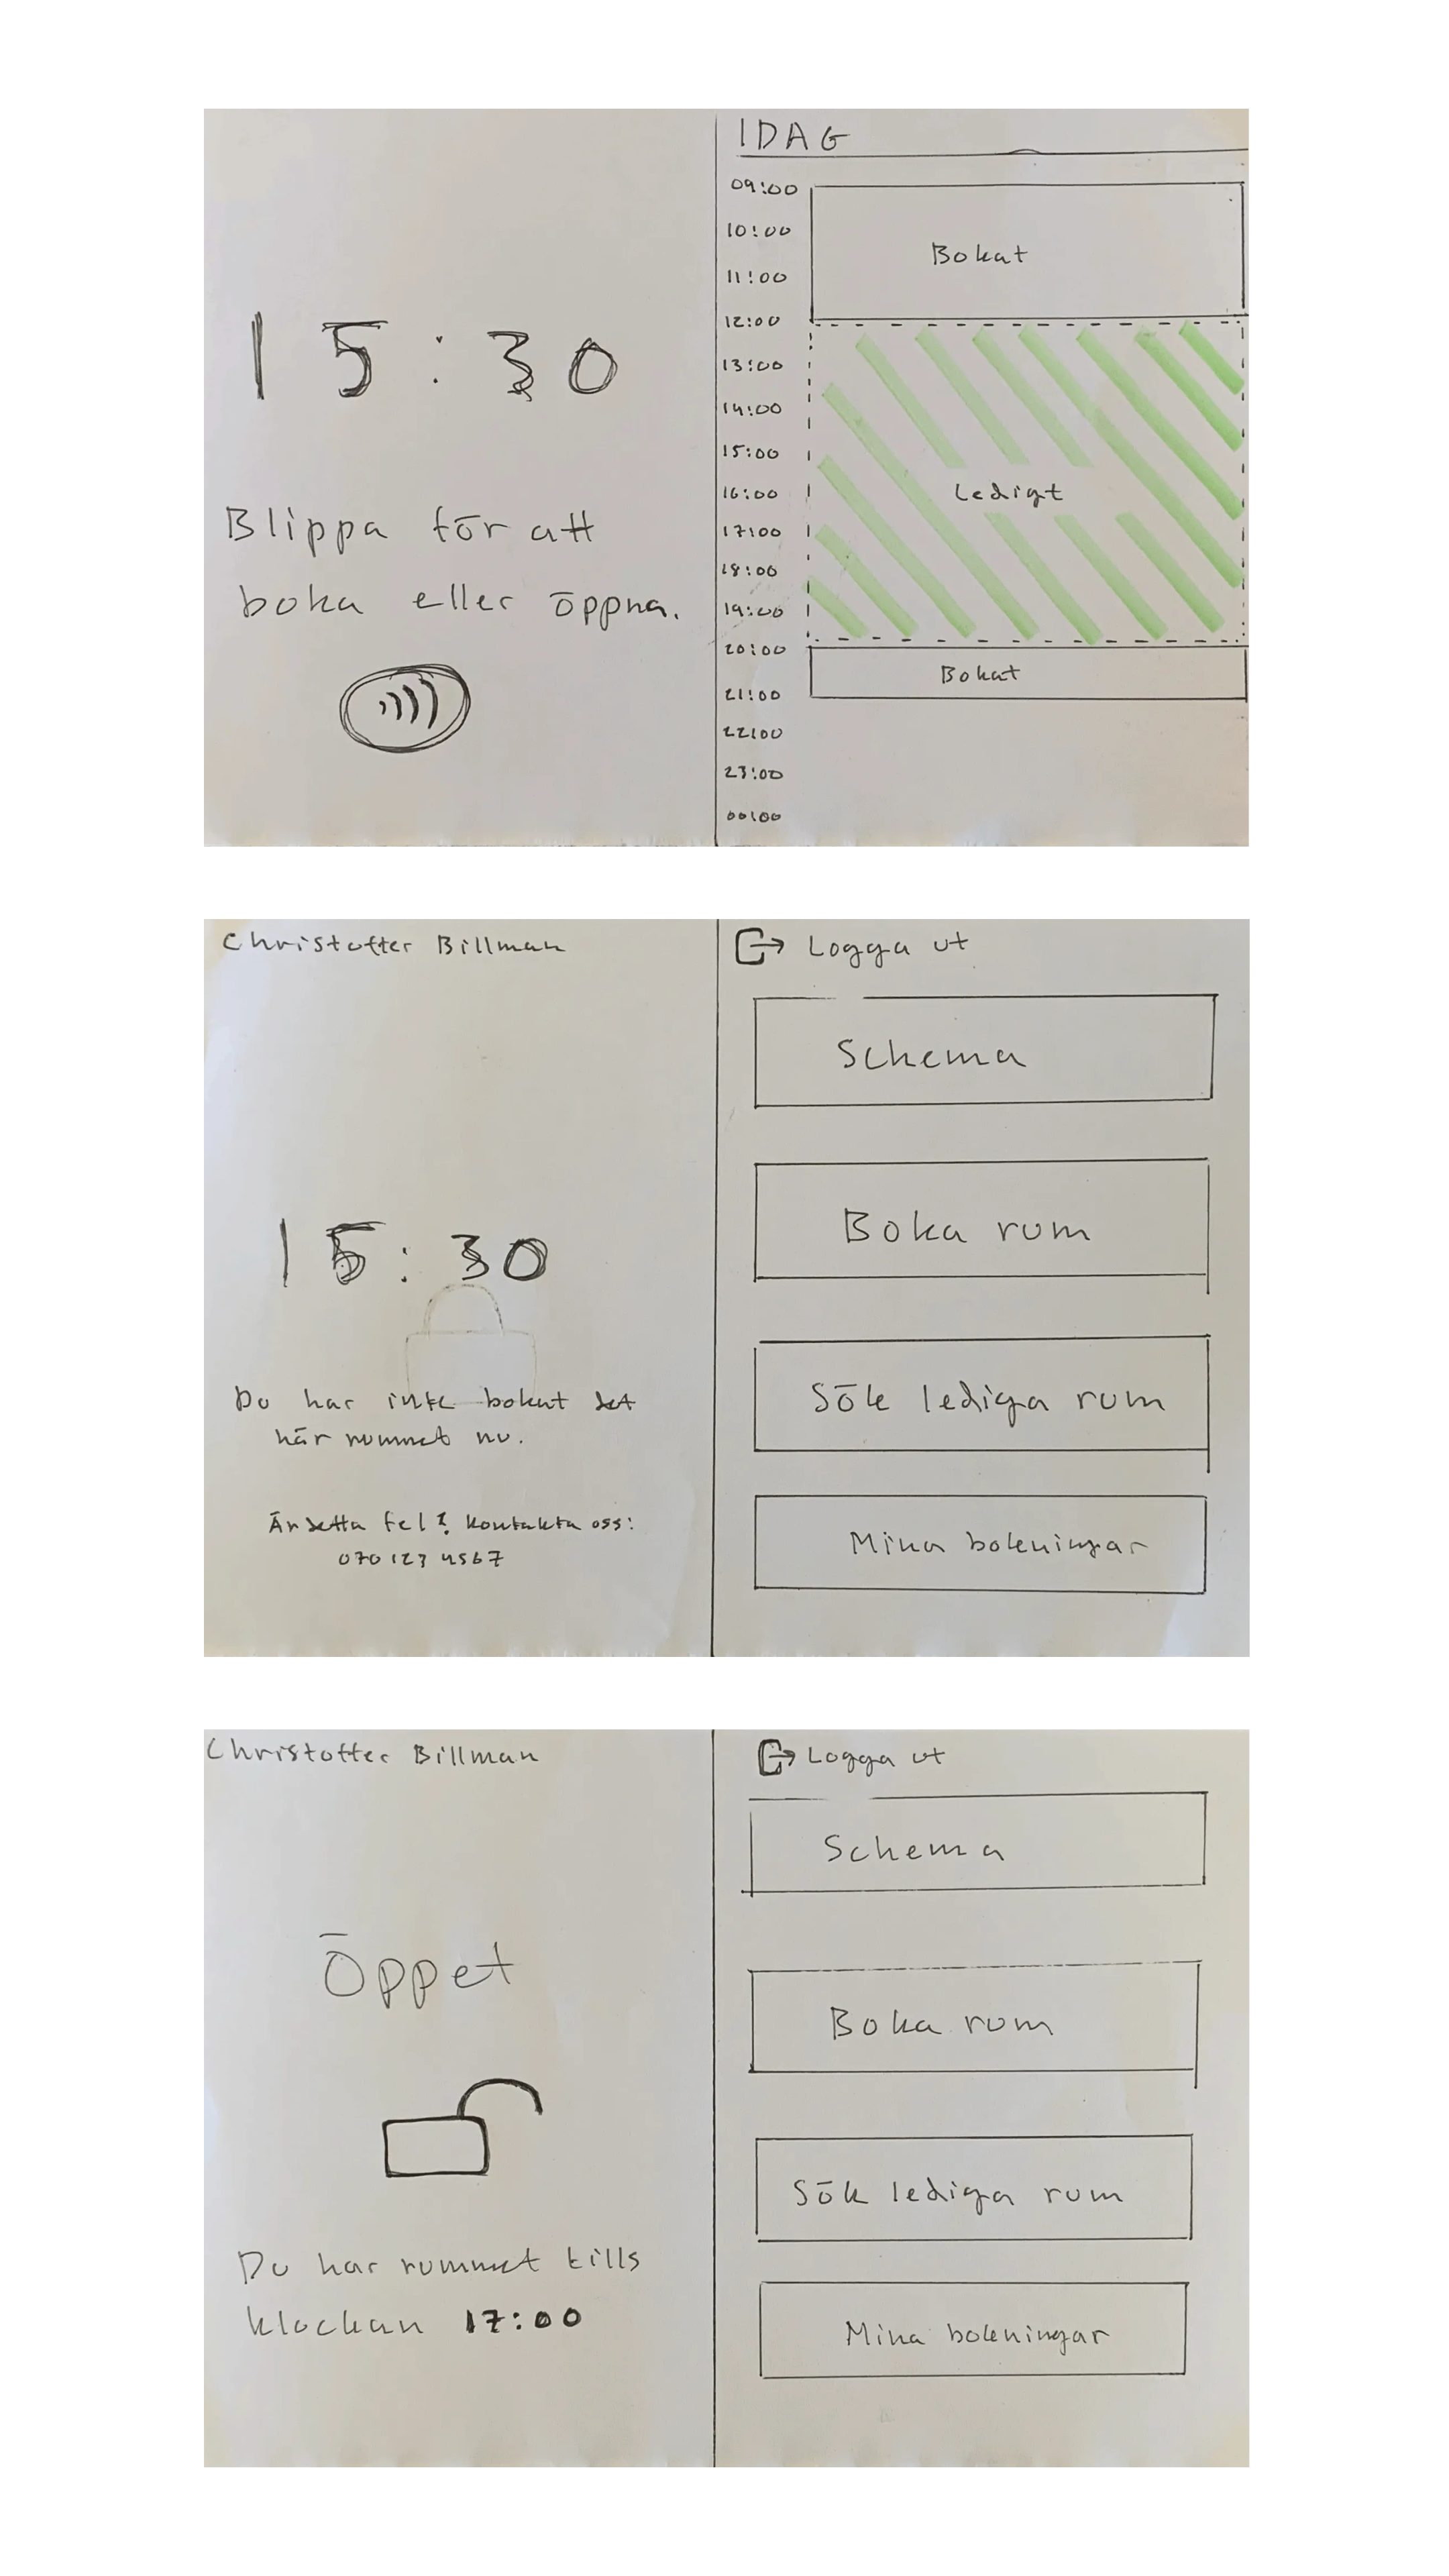 15:30
Blippa för att
boka eller öppna.
IDAG
09:00
10:00
Bokat
11:00
12:00
13:00
14:00
15:00
16:00
Ledigt
17:00
18:00
19:00
20:00
Bokat
21:00
22:00
23:00
00:00
Christoffer Billman
15:30
Du har inte bokat det
här rummet nu.
Är detta fel? Kontakta oss:
070 123 4567
Logga ut
Schema
Boka rum
Sök lediga rum
Mina bokningar
Christoffer Billman
Öppet
Du har rummet tills
klockan 17:00
Logga ut
Schema
Boka rum
Sök lediga rum
Mina bokningar